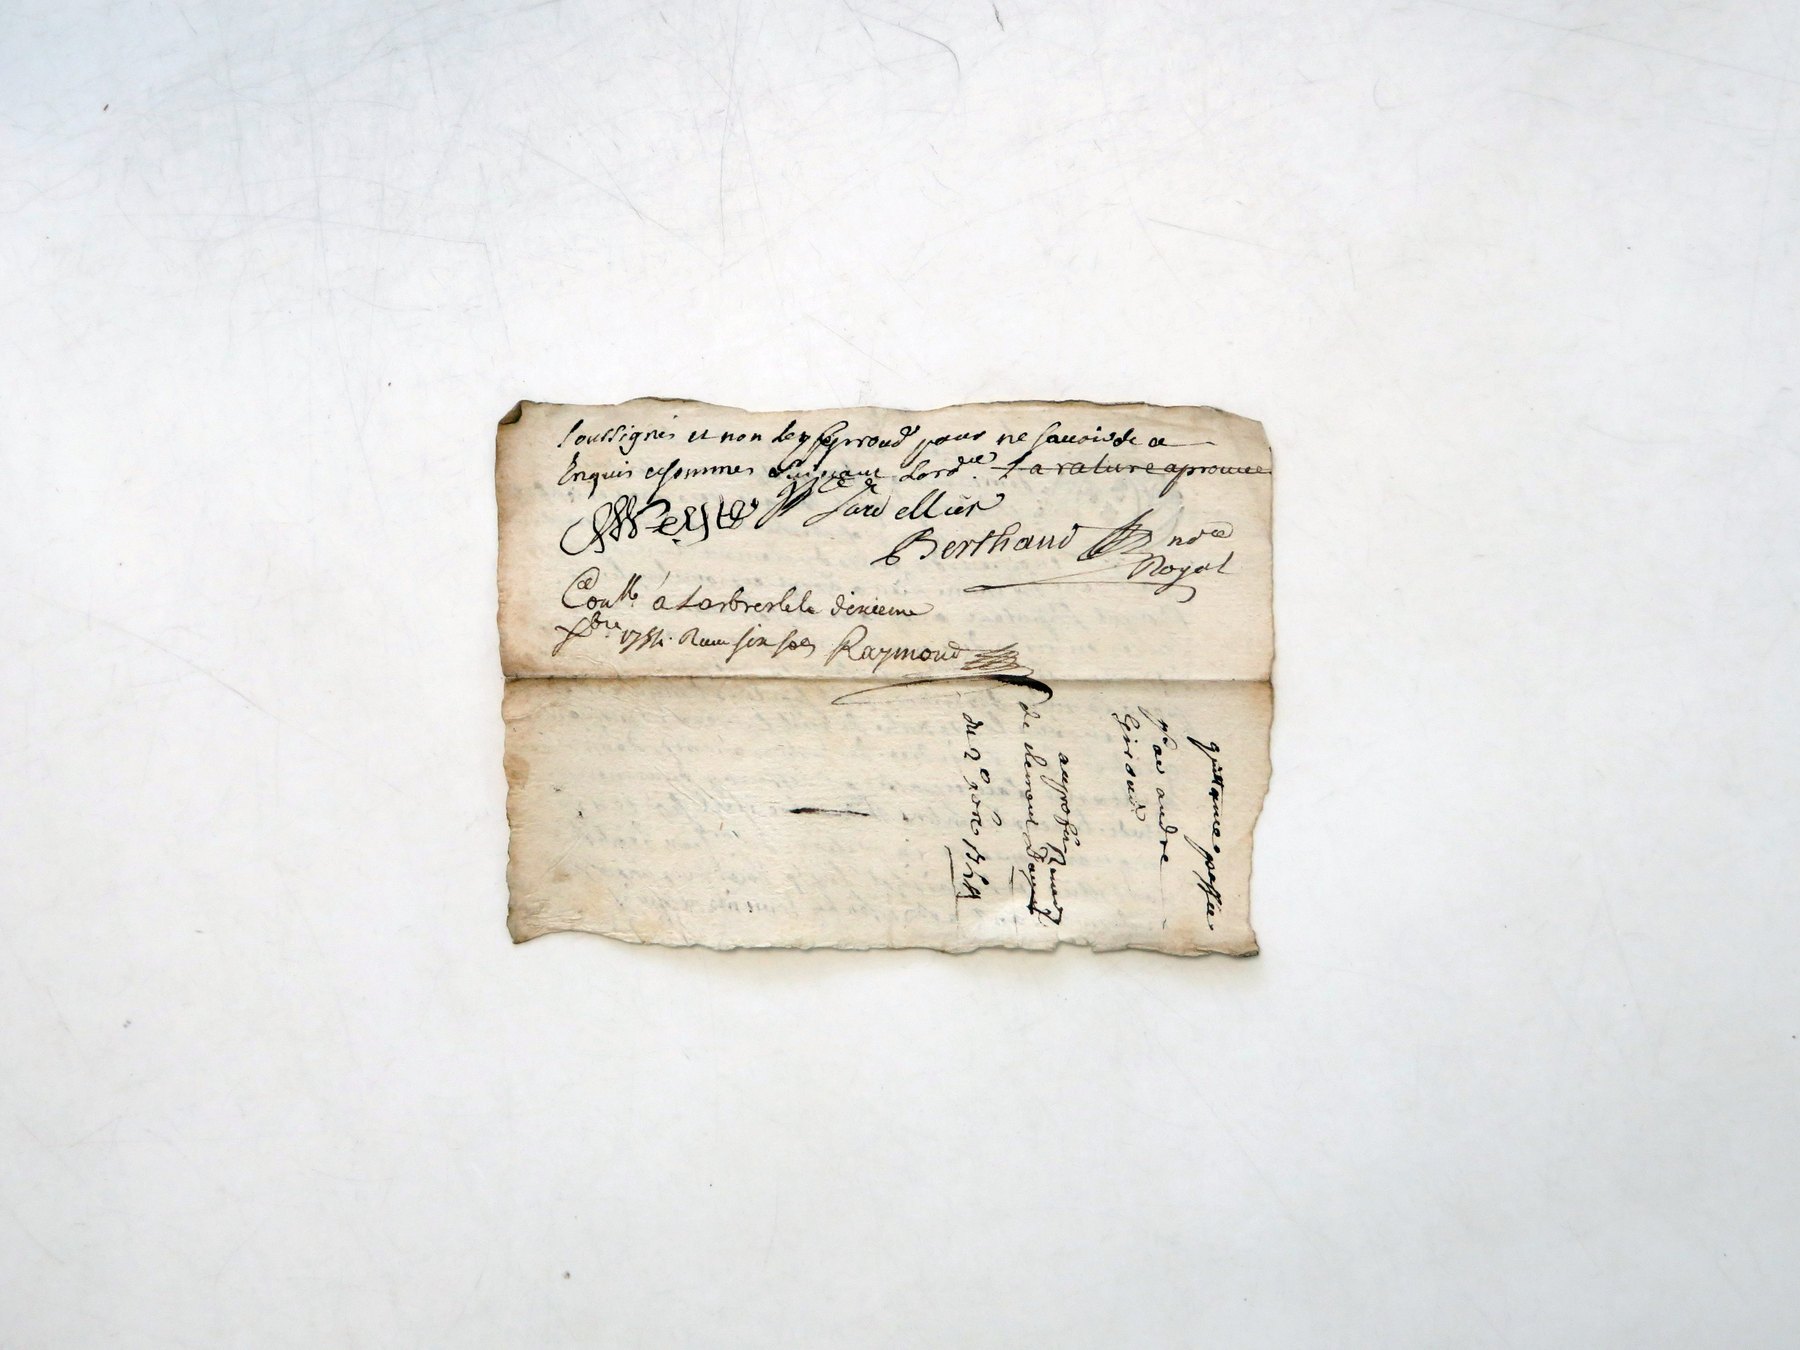 soussignés et non led. pour ne sauoir de ce
Enquis et sommés suiuant Lord.ce La rature aprouuee
Sardellier
Berthaud no.re
Royal
Con.llé a Larbresle le dixieme
xbre 1754. Recu six sols Raymond
quittance passée
par andre
Giraud
au profit
de clemond
du 2e 1754